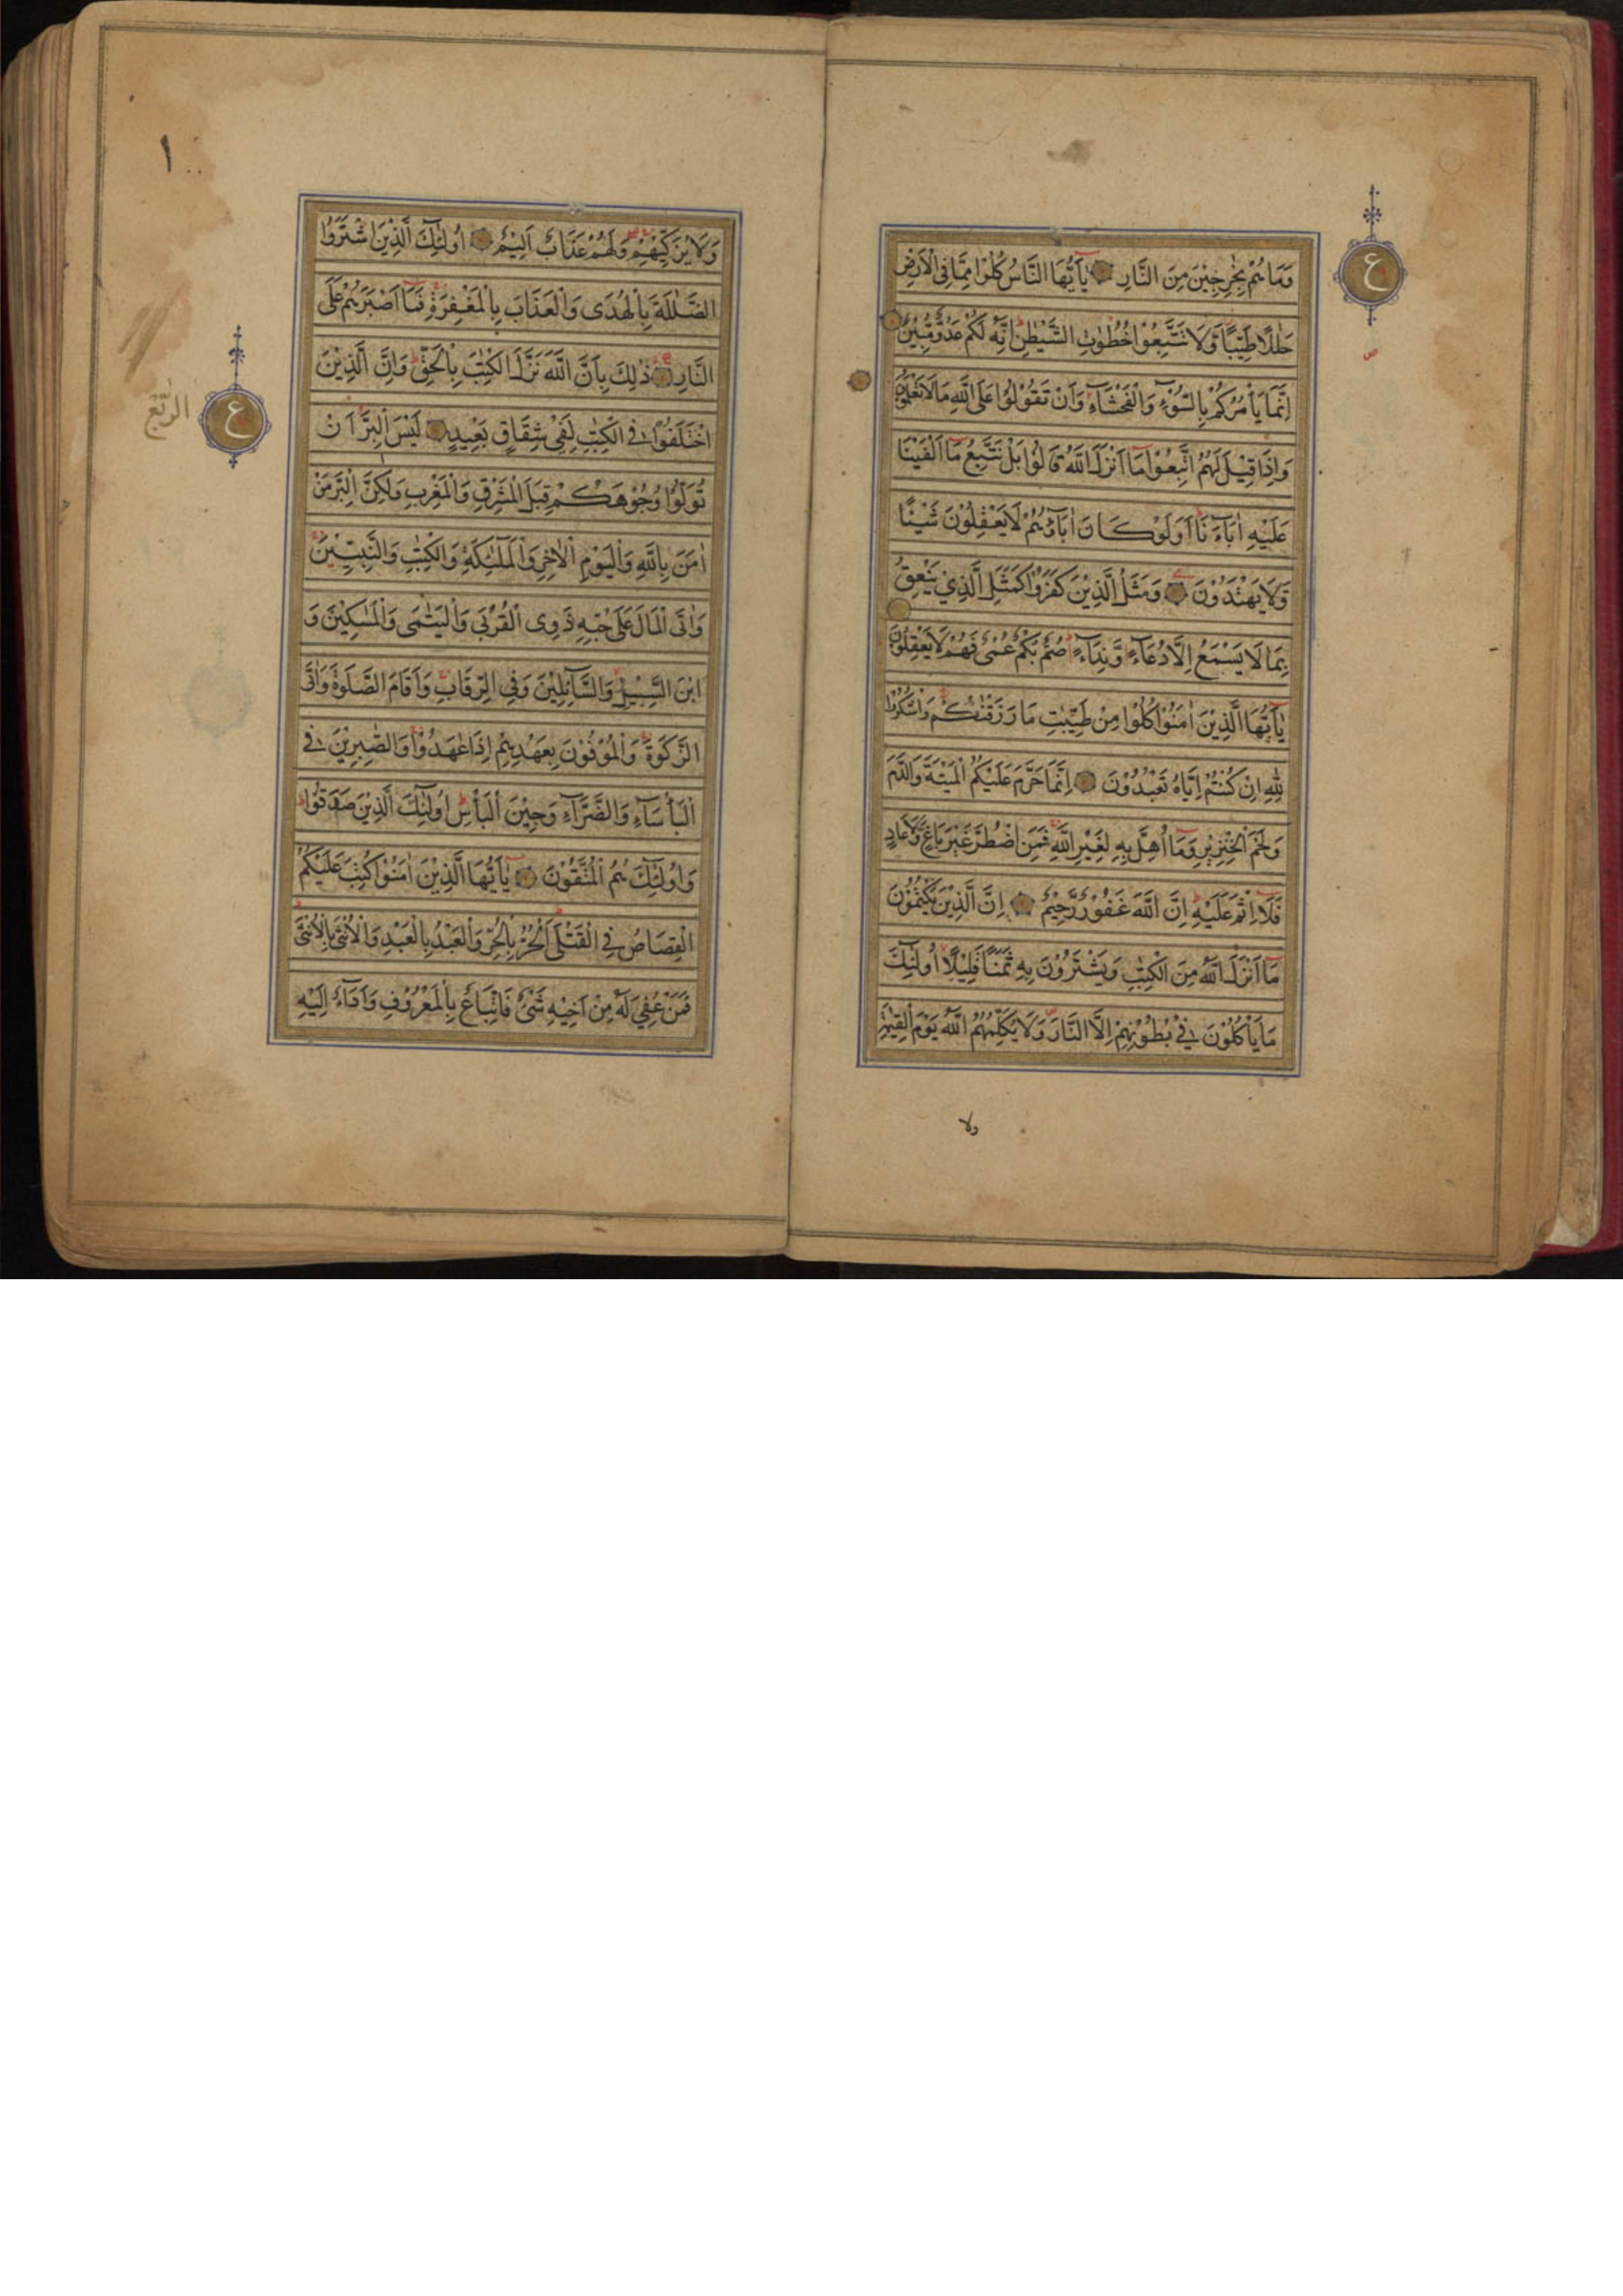 وَمَا هُمْ بِخٰرِجِيْنَ مِنَ النَّارِ يٰۤاَيُّهَا النَّاسُ كُلُوْا مِمَّا فِي الْاَرْضِ
حَلٰلًا طَيِّبًا وَّلَا تَتَّبِعُوْا خُطُوٰتِ الشَّيْطٰنِ اِنَّهٗ لَكُمْ عَدُوٌّ مُّبِيْنٌ
اِنَّمَا يَاْمُرُكُمْ بِالسُّوْۤءِ وَالْفَحْشَاۤءِ وَاَنْ تَقُوْلُوْا عَلَى اللّٰهِ مَا لَا تَعْلَمُوْنَ
وَاِذَا قِيْلَ لَهُمُ اتَّبِعُوْا مَاۤ اَنْزَلَ اللّٰهُ قَالُوْا بَلْ نَتَّبِعُ مَاۤ اَلْفَيْنَا
عَلَيْهِ اٰبَاۤءَنَا اَوَلَوْ كَانَ اٰبَاۤؤُهُمْ لَا يَعْقِلُوْنَ شَيْئًا
وَّلَا يَهْتَدُوْنَ وَمَثَلُ الَّذِيْنَ كَفَرُوْا كَمَثَلِ الَّذِيْ يَنْعِقُ
بِمَا لَا يَسْمَعُ اِلَّا دُعَاۤءً وَّنِدَاۤءً صُمٌّ بُكْمٌ عُمْيٌ فَهُمْ لَا يَعْقِلُوْنَ
يٰۤاَيُّهَا الَّذِيْنَ اٰمَنُوْا كُلُوْا مِنْ طَيِّبٰتِ مَا رَزَقْنٰكُمْ وَاشْكُرُوْا
لِلّٰهِ اِنْ كُنْتُمْ اِيَّاهُ تَعْبُدُوْنَ اِنَّمَا حَرَّمَ عَلَيْكُمُ الْمَيْتَةَ وَالدَّمَ
وَلَحْمَ الْخِنْزِيْرِ وَمَاۤ اُهِلَّ بِهٖ لِغَيْرِ اللّٰهِ فَمَنِ اضْطُرَّ غَيْرَ بَاغٍ وَّلَا عَادٍ
فَلَاۤ اِثْمَ عَلَيْهِ اِنَّ اللّٰهَ غَفُوْرٌ رَّحِيْمٌ اِنَّ الَّذِيْنَ يَكْتُمُوْنَ
مَاۤ اَنْزَلَ اللّٰهُ مِنَ الْكِتٰبِ وَيَشْتَرُوْنَ بِهٖ ثَمَنًا قَلِيْلًا اُولٰۤئِكَ
مَا يَاْكُلُوْنَ فِيْ بُطُوْنِهِمْ اِلَّا النَّارَ وَلَا يُكَلِّمُهُمُ اللّٰهُ يَوْمَ الْقِيٰمَةِ
ولا
ع
ص
١٠
وَلَا يُزَكِّيْهِمْ وَلَهُمْ عَذَابٌ اَلِيْمٌ اُولٰۤئِكَ الَّذِيْنَ اشْتَرَوُا
الضَّلٰلَةَ بِالْهُدٰى وَالْعَذَابَ بِالْمَغْفِرَةِ فَمَاۤ اَصْبَرَهُمْ عَلَى
النَّارِ ذٰلِكَ بِاَنَّ اللّٰهَ نَزَّلَ الْكِتٰبَ بِالْحَقِّ وَاِنَّ الَّذِيْنَ
اخْتَلَفُوْا فِي الْكِتٰبِ لَفِيْ شِقَاقٍ بَعِيْدٍ لَيْسَ الْبِرَّ اَنْ
تُوَلُّوْا وُجُوْهَكُمْ قِبَلَ الْمَشْرِقِ وَالْمَغْرِبِ وَلٰكِنَّ الْبِرَّ مَنْ
اٰمَنَ بِاللّٰهِ وَالْيَوْمِ الْاٰخِرِ وَالْمَلٰۤئِكَةِ وَالْكِتٰبِ وَالنَّبِيّٖنَ
وَاٰتَى الْمَالَ عَلٰى حُبِّهٖ ذَوِى الْقُرْبٰى وَالْيَتٰمٰى وَالْمَسٰكِيْنَ وَ
ابْنَ السَّبِيْلِ وَالسَّاۤئِلِيْنَ وَفِي الرِّقَابِ وَاَقَامَ الصَّلٰوةَ وَاٰتَى
الزَّكٰوةَ وَالْمُوْفُوْنَ بِعَهْدِهِمْ اِذَا عٰهَدُوْا وَالصّٰبِرِيْنَ فِي
الْبَاْسَاۤءِ وَالضَّرَّاۤءِ وَحِيْنَ الْبَاْسِ اُولٰۤئِكَ الَّذِيْنَ صَدَقُوْا
وَاُولٰۤئِكَ هُمُ الْمُتَّقُوْنَ يٰۤاَيُّهَا الَّذِيْنَ اٰمَنُوْا كُتِبَ عَلَيْكُمُ
الْقِصَاصُ فِي الْقَتْلٰى اَلْحُرُّ بِالْحُرِّ وَالْعَبْدُ بِالْعَبْدِ وَالْاُنْثٰى بِالْاُنْثٰى
فَمَنْ عُفِيَ لَهٗ مِنْ اَخِيْهِ شَيْءٌ فَاتِّبَاعٌ بِالْمَعْرُوْفِ وَاَدَاۤءٌ اِلَيْهِ
ع
الرّبع